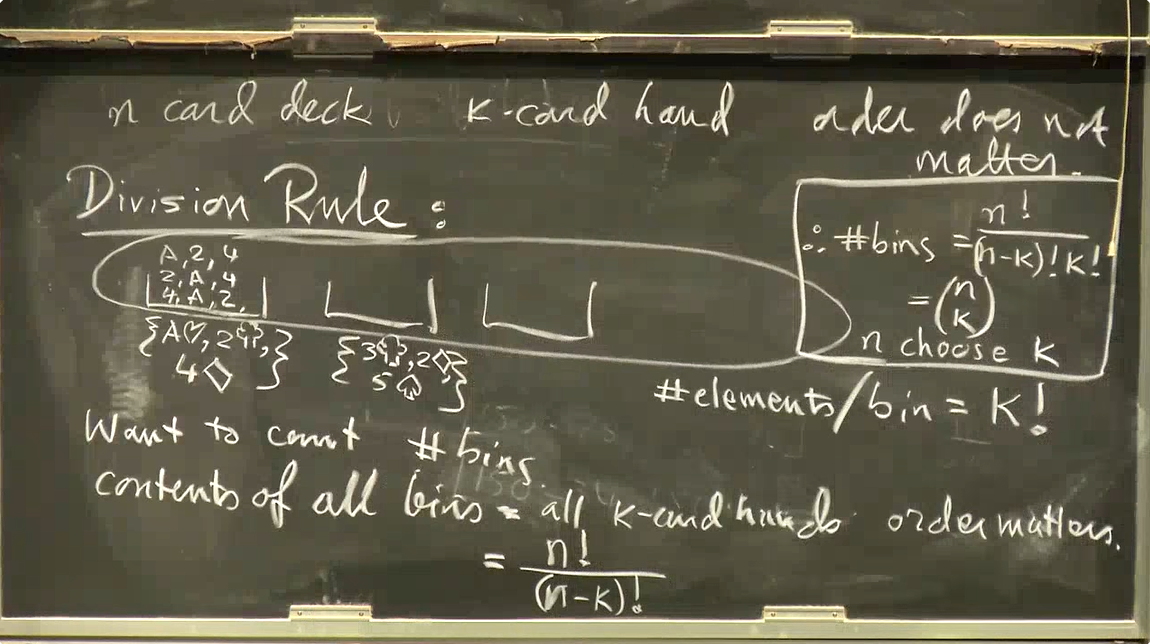 n card deck K-card hand order does not matter.
Division Rule:
A, 2, 4
2, A, 4
4, A, 2,
{A♡, 2♧, 4♢} {3♧, 2♢, 5♤}
∴ #bins = n!/((n-k)!k!)
= (n k)
n choose K
#elements/bin = K!
Want to count #bins.
contents of all bins = all k-card hands order matters.
= n!/(n-k)!